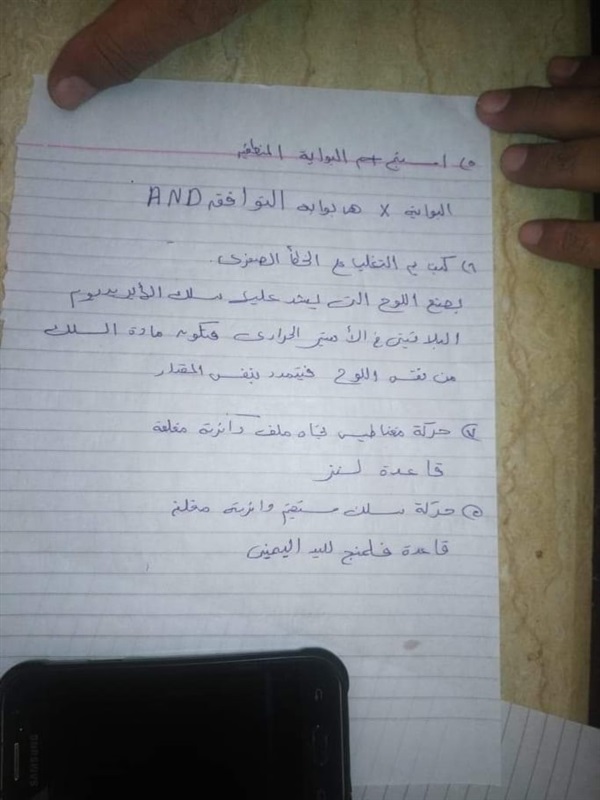 ٥) استنتج اسم البوابة المنطقية
البوابة X هي بوابة التوافق AND
٦) كيف يتم التغلب على الخطأ الصفرى.
بصنع اللوح التى يشد عليك سلك الأيريديوم
البلاتينى فى الأميتر الحرارى فتكون مادة السلك
من نفس اللوح فيتمدد بنفس المقدار
٧) حركة مغناطيس تجاه ملف دائرته مغلقة
قاعدة لنز
٨) حركة سلك مستقيم دائرته مغلقة
قاعدة فلمنج لليد اليمينى
SAMSUNG